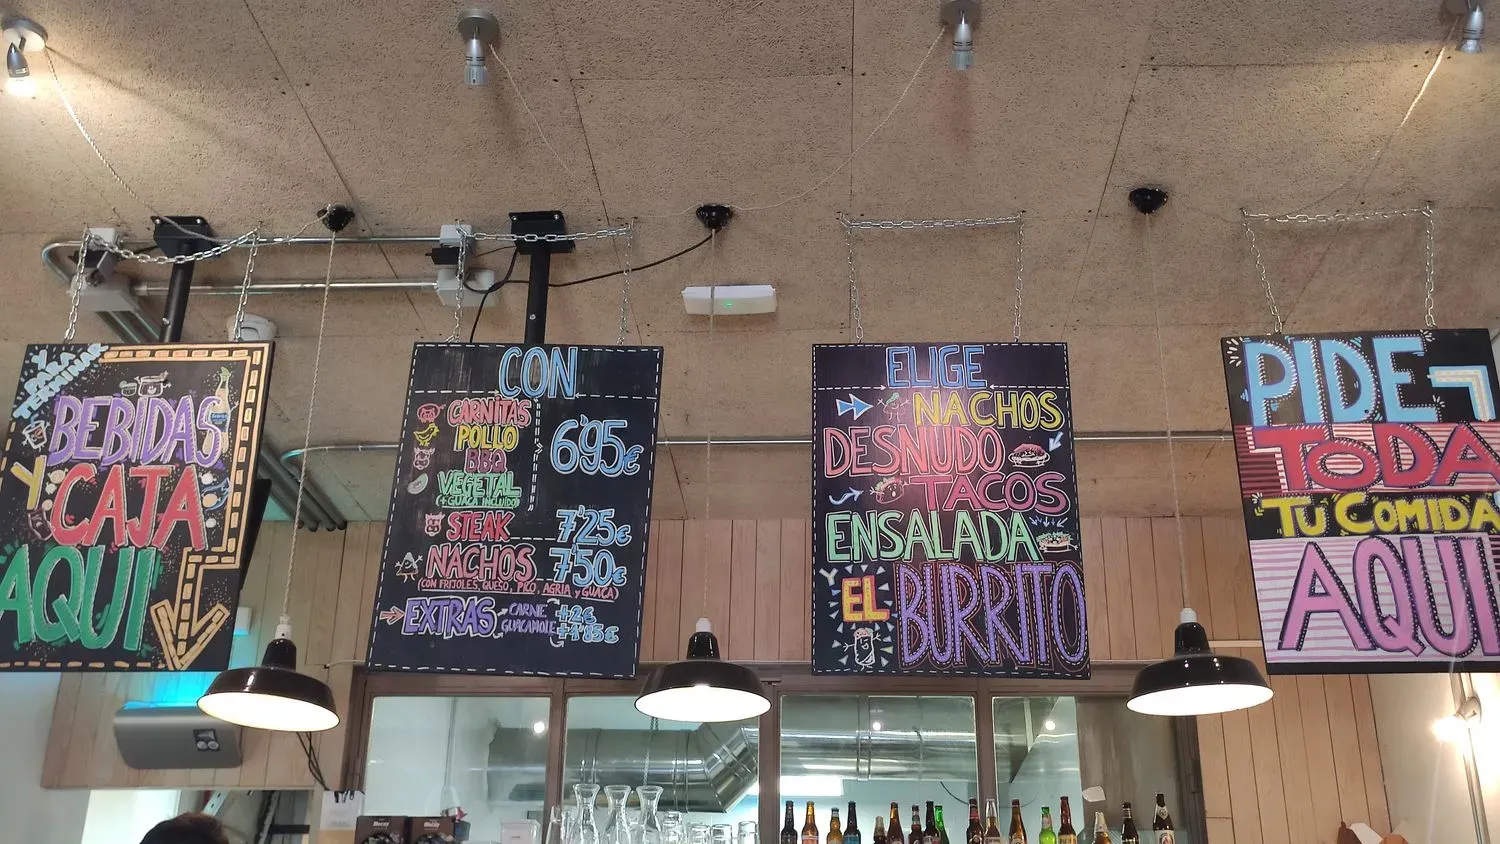 Y
PARA
TERMINAR
BEBIDAS
Y CAJA
AQUI
CON
CARNITAS
POLLO
BBQ
VEGETAL
(+GUACA INCLUIDO)
6'95€
STEAK 7'25€
NACHOS 7'50€
(CON FRIJOLES, QUESO, PICO, AGRIA Y GUACA)
EXTRAS
CARNE +2€
GUACAMOLE +1'85€
ELIGE
NACHOS
DESNUDO
TACOS
ENSALADA
Y
EL BURRITO
PIDE
TODA
TU COMIDA
AQUI